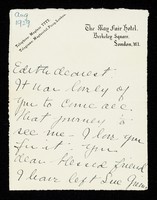 Aug
1929
Telephone: Mayfair 7777
The May Fair Hotel,
Berkeley Square,
London, W.1.
Edith dearest
It was lovely of
you to come all
that journey to
see me - I love you
for it - you
dear blessed friend
I have left